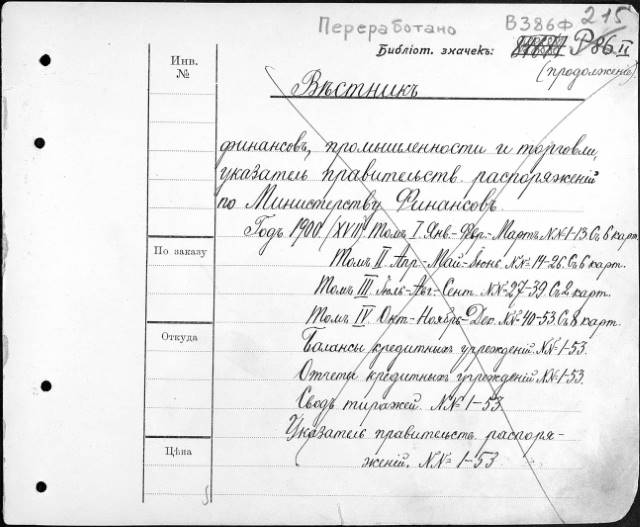 Переработано В386Ф 215
Библіот. значекъ: Р86 II
(продолженіе)
Инв.
№
Вѣстникъ
финансовъ, промышленности и торговли,
указатель правительств. распоряженій
по Министерству Финансовъ.
Годъ 1900. (XVII) Томъ I. Янв.-Фвр.-Мартъ. NN 1-13. Съ 6 карт.
По заказу
Томъ II. Апр.-Май-Іюнь. NN 14-26. Съ 6 карт.
Томъ III. Іюль-Авг.-Сент. NN 27-39. Съ 2 карт.
Томъ IV. Окт-Ноябрь-Дек. NN 40-53. Съ 8 карт.
Откуда
Балансы кредитныхъ учрежденій. NN 1-53.
Отчеты кредитныхъ учрежденій. NN 1-53.
Сводъ тиражей. NN 1-53.
Указатель правительств. распоря-
Цѣна
женій. NN 1-53.